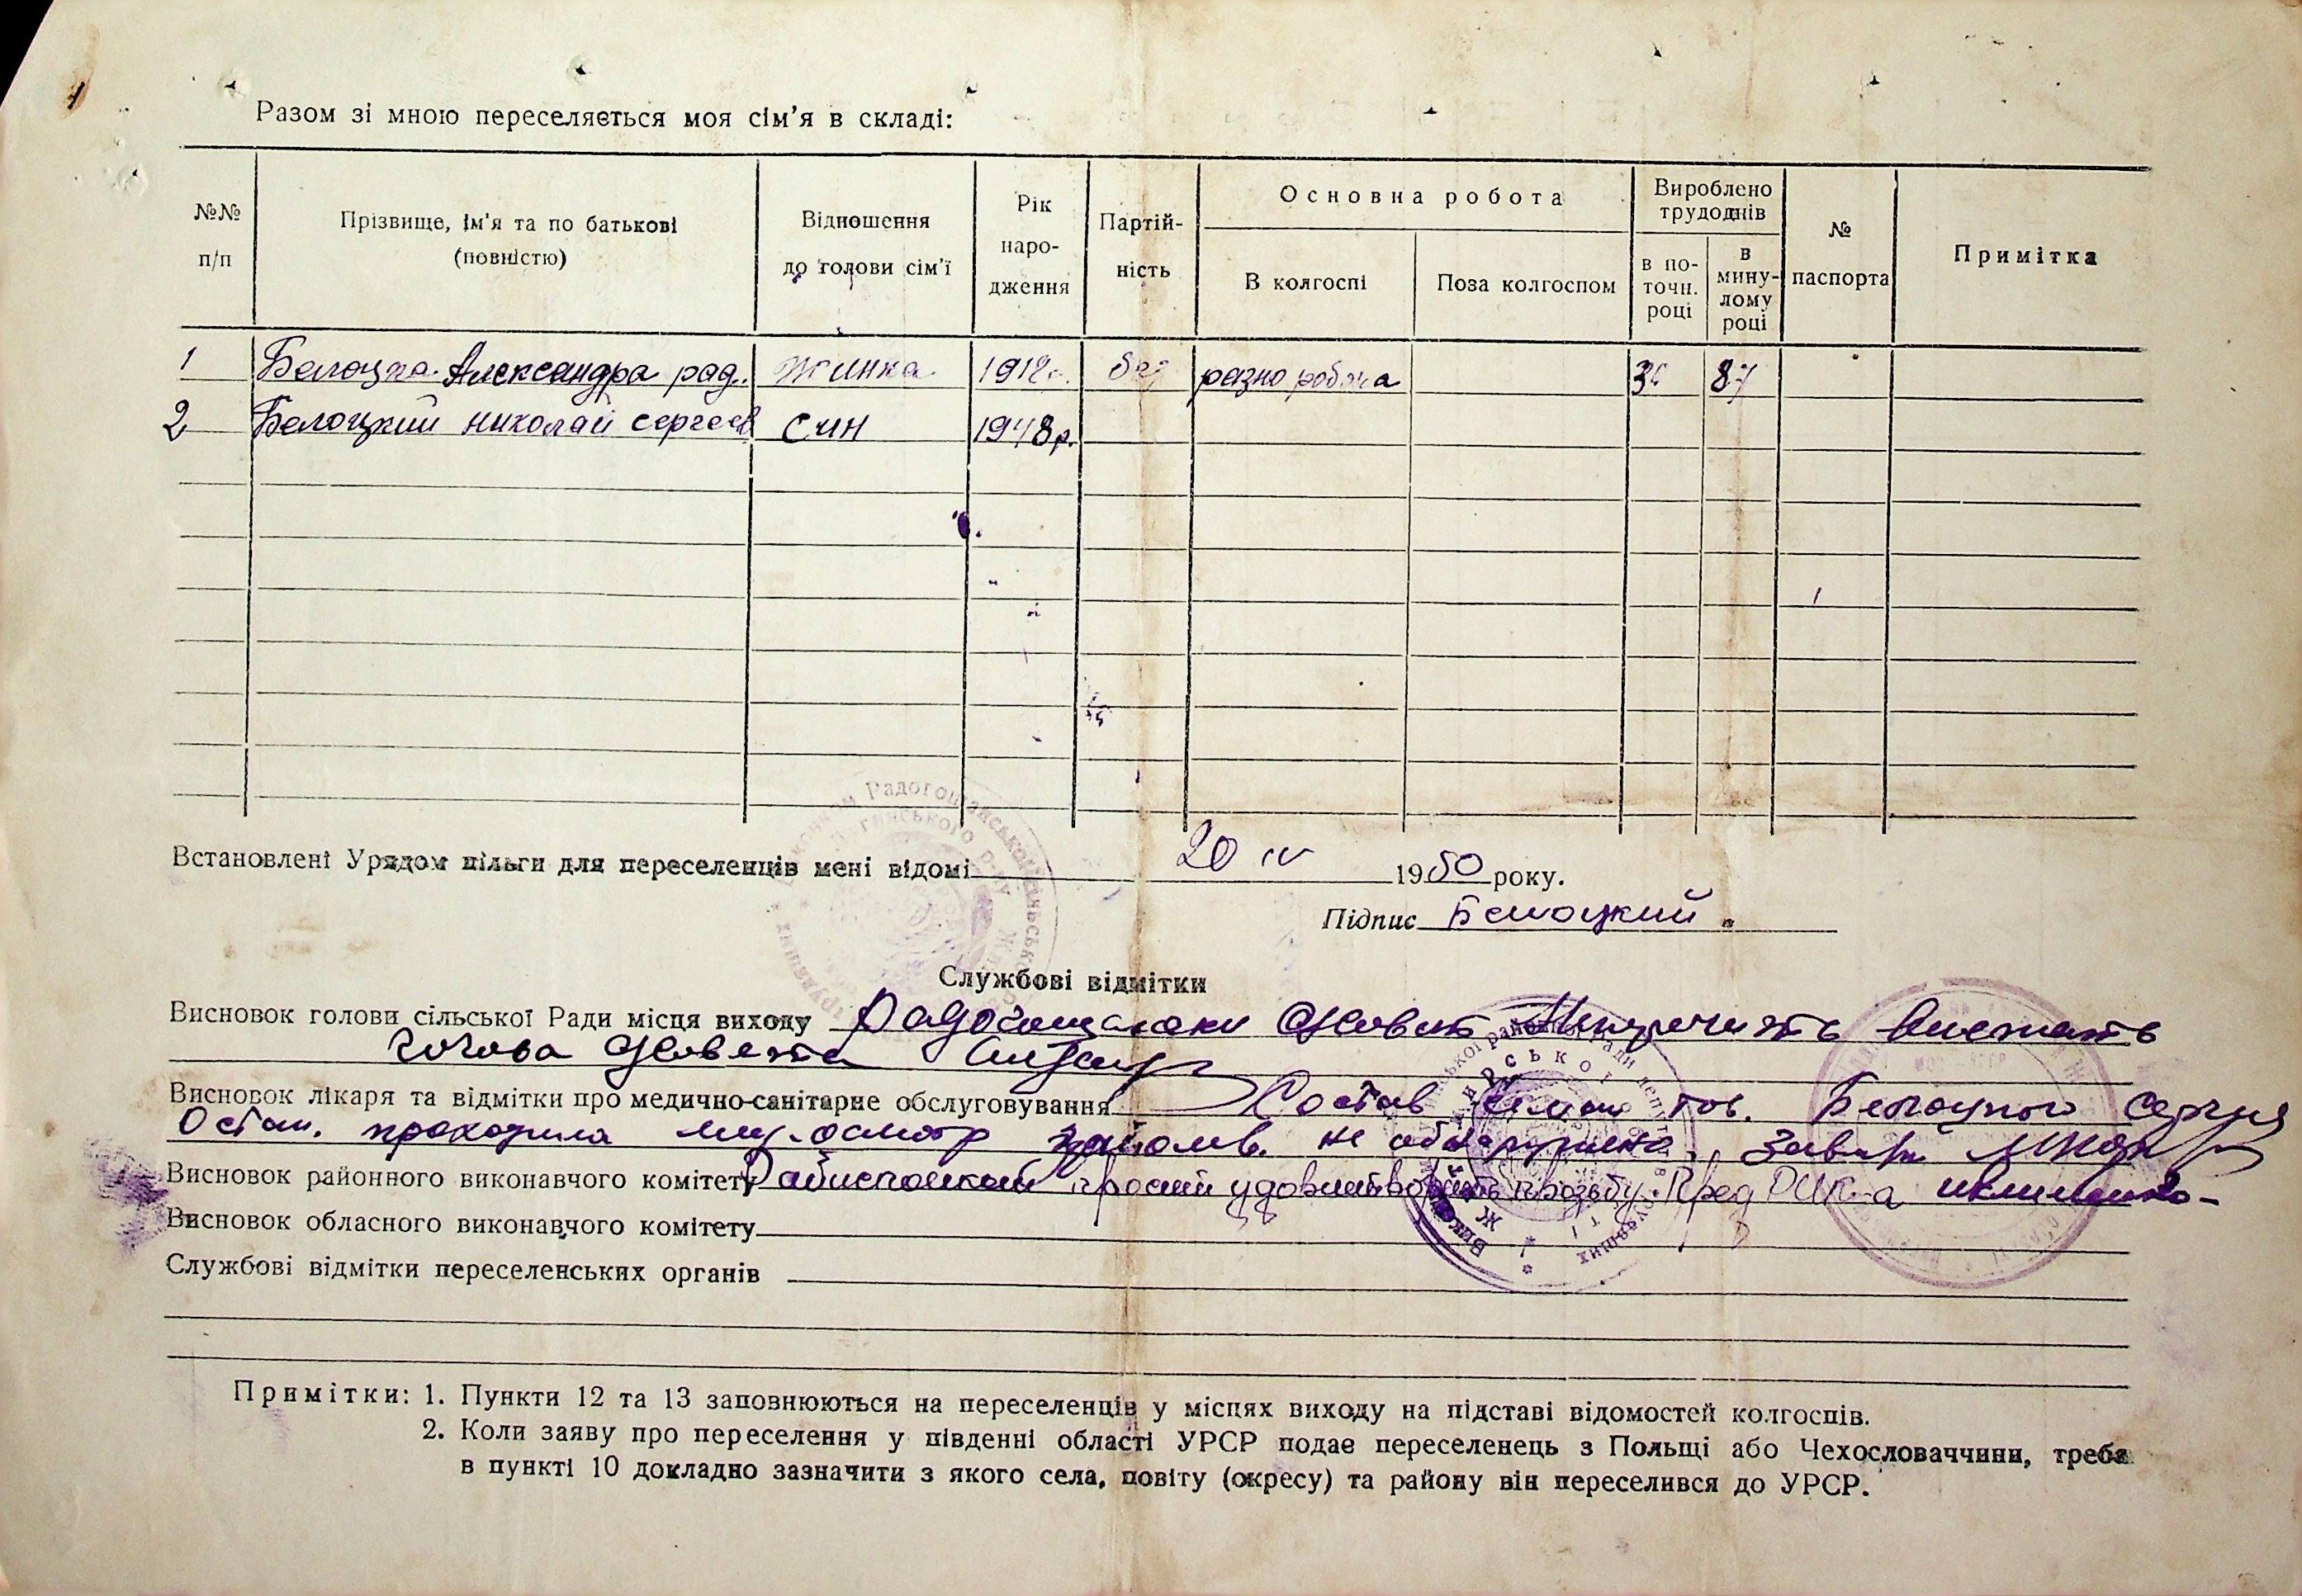 Разом зі мною переселяється моя сім'я в складі:
№№ п/п
Прізвище, ім'я та по батькові (повністю)
Відношення до голови сім'ї
Рік народження
Партійність
Основна робота
В колгоспі
Поза колгоспом
Вироблено трудоднів
в поточн. році
в минулому році
№ паспорта
Примітка
1 Белоцка Александра рад. жинка 1912 без разно робоча 87
2 Белоцкий николай сергеев син 1948р.
Встановлені Урядом пільги для переселенців мені відомі 20 IV 1950 року.
Підпис Белоцкий
Службові відмітки
Висновок голови сільської Ради місця виходу
Висновок лікаря та відмітки про медично-санітарне обслуговування Состав семьи тов. Белоцкого Сергея
Остап. проходила мед. осмотр заболев. не обнаружено.
Висновок районного виконавчого комітету Райисполком просит удовлитворить прозьбу. Пред РИК-а
Висновок обласного виконавчого комітету
Службові відмітки переселенських органів
Примітки: 1. Пункти 12 та 13 заповнюються на переселенців у місцях виходу на підставі відомостей колгоспів.
2. Коли заяву про переселення у південні області УРСР подає переселенець з Польщі або Чехословаччини, треба
в пункті 10 докладно зазначити з якого села, повіту (окресу) та району він переселився до УРСР.